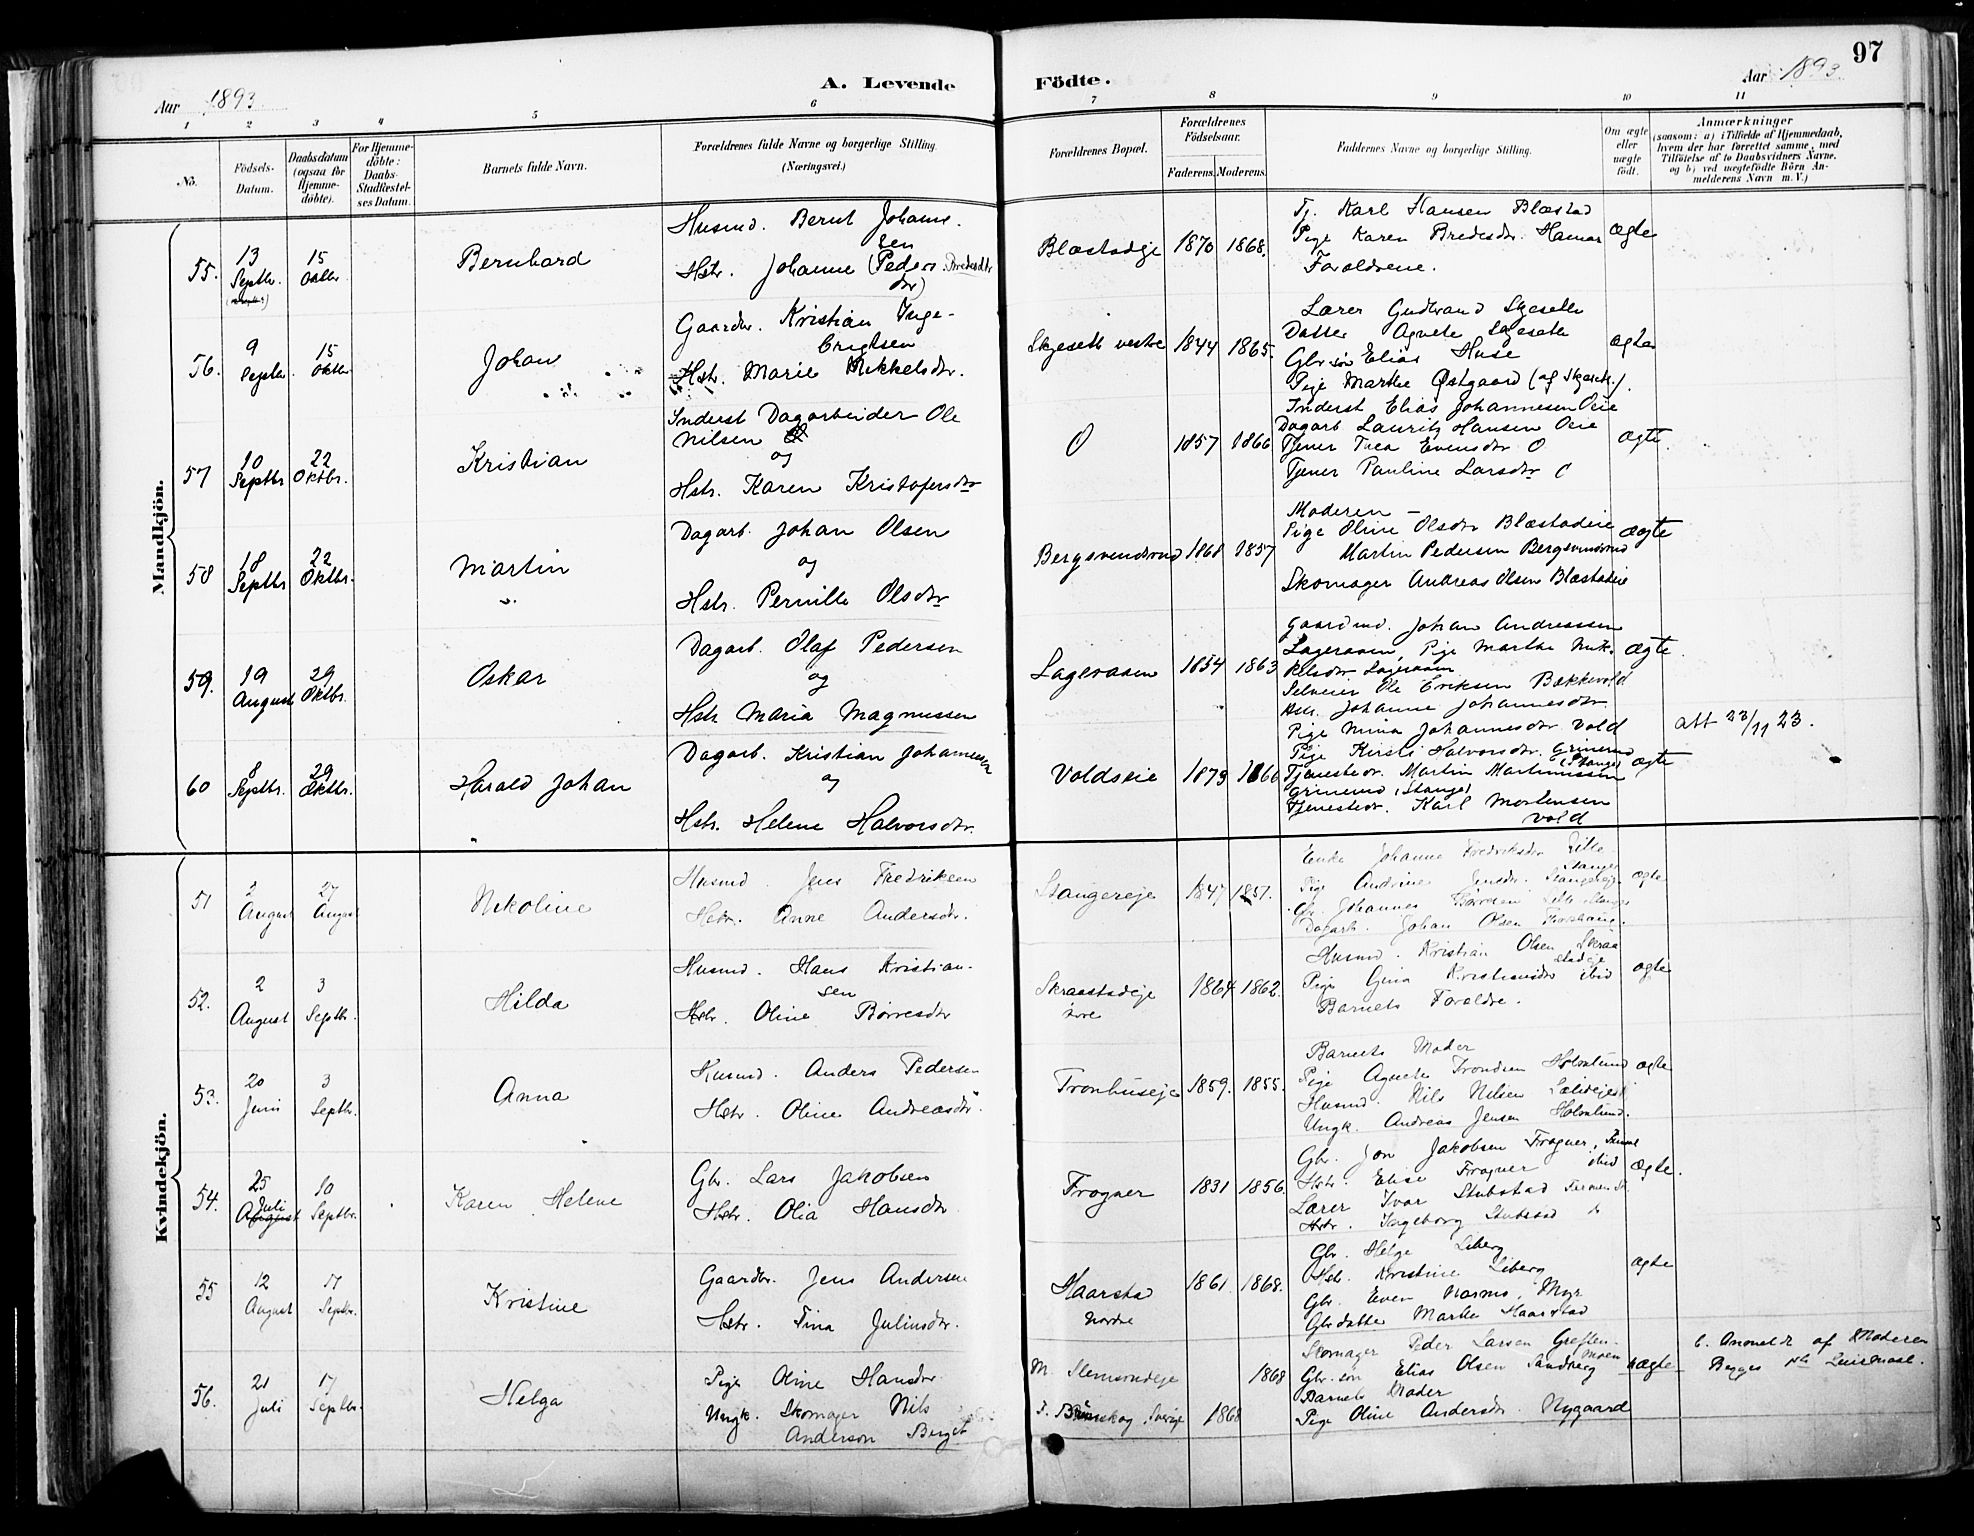 97
Aar 1893.
A. Levende
Födte.
Aar 1893.
1 2 3 4 5 6 7 8 9 10 11
No.
Födsels-Datum.
Daabsdatum (ogsaa for Hjemme-döbte).
For Hjemme-döbte: Daabs-Stadfæstel-ses Datum.
Barnets fulde Navn.
Forældrenes fulde Navne og borgerlige Stilling
(Næringsvei.)
Forældrenes Bopæl.
Forældrenes Födselsaar.
Faderens. Moderens.
Faddernes Navne og borgerlige Stilling.
Om ægte eller uægte födt.
Anmærkninger
(saasom: a) i Tilfælde af Hjemmedaab,
hvem der har forrettet samme, med
Tilföielse af to Daabsvidners Navne.
og b) ved uægtefödte Börn An-
melderens Navn m. V.)
Mandkjön.
55. 13 Septbr. 15 Oktbr. Bernhard
Husmd. Bernt Johann-
sen
Hstr. Johanne (Peders Bredesdtr
dtr)
Blæstadeje 1870 1868.
Tj. Karl Hansen Blæstad
Pige Karen Bredesdtr. Hamar
Forældrene.
ægte
56. 9 Septbr. 15 Oktbr. Johan
Gaardbr. Kristian Inge-
brigtsen
Hstr. Marie Mikkelsdtr.
Skjeseth vestre 1844 1865.
Lærer Gudbrand Skjeseth
Datter Agnete Skjeseth
Gbr søn Elias Huse
Pige Marthe Østgaard (af Skjeseth).
ægte
57 10 Septbr 22 Oktbr. Kristian
Inderst Dagarbeider Ole
Nilsen
og
Hstr. Karen Kristofersdtr
O 1857 1866
Inderst Elias Johannesen Oeie
Dagarb Lauritz Hansen Oeie
Tjener Thea Evensdtr O
Tjener Pauline Larsdtr O
ægte.
58 18 Septbr 22 Oktbr. Martin
Dagarb. Johan Olsen
og
Hstr. Pernille Olsdtr
Bergsvendsrud 1868 1857
Moderen –
Pige Oline Olsdtr Blæstadeie
Martin Pedersen Bergsvendsrud
Skomager Andreas Olsen Blæstadeie
ægte
59. 19 August 29 Oktbr. Oskar
Dagarb. Olaf Pedersen
og
Hstr Maria Magnussen
Lageraasen 1854 1863
Gaardmd. Johan Andreassen
Lageraasen, Pige Marthe Mik-
kelsdtr Lageraasen
Selveier Ole Eriksen Bækkevold
Hstr. Johanne Johannesdtr
ægte.
60 8 Septbr. 29 Oktbr. Harald Johan
Dagarb. Kristian Johannesen
og
Hstr. Helene Halvorsdtr.
Voldseie 1873 1866
Pige Mina Johannesdtr Vold
Pige Kirsti Halvorsdtr. Grinerud
(Stange)
Tjenestedr. Martin Martinussen
Grinerud (Stange)
Tjenestedr. Karl Mortensen
Vold
ægte
att 23/11 23.
Kvindekjön.
51 2 August 27 August Nikoline
Husmd Jens Fredriksen
Hstr. Anne Andersdtr.
Stangereje 1847 1851.
Enke Johanne Fredriksdtr Lille-
Stange
Pige Andrine Jensdtr. Stangereje
Gbr. Johannes Børresen Lille Stange
Dagarb. Johan Olsen
ægte
52. 2 August 3 Septbr. Hilda
Husmd. Hans Kristian-
sen
Hstr. Oline Børresdtr
Skraastadeje
1864 1862.
Husmd. Kristian Olsen Skraa
stadeje
Pige Gina Kristiansdtr ibid
Barnets Forældre.
ægte
53. 20 Juni 3 Septbr. Anna
Husmd. Anders Pedersen
Hstr. Oline Andreasdtr.
Tronhuseje 1859. 1855.
Barnets Moder
Pige Agnete Trondsen Holmlund
Husmd. Nils Nilsen Lælideje
Ungk. Andreas Jensen Holmlund.
ægte
54. 25 Juli August 10 Septbr. Karen Helene
Gbr. Lars Jakobsen
Hstr. Olia Hansdtr.
Frogner 1831 1856.
Gbr. Jon Jakobsen Frogner,
Hstr. Elise Frogner ibid
Lærer Ivar Stubstad
Hstr. Ingeborg Stubstad
ægte.
55 12 August 17 Septbr. Kristine
Gaardbr. Jens Andersen
Hstr. Tina Juliusdtr.
Haarsta
Nordre
1861 1868.
Gbr. Helge Liberg
Hstr. Kristine Liberg
Gbr. Even Rasmus. Myr
Gbrdatter Marthe Haarstad
ægte
56. 21 Juli 17 Septbr. Helga
Pige Oline Hansdtr.
Ungk. Skomager Nils
Anderson Berget
M. Stensrudeje 1868
F. Skog, Sverige 1868
Skomager Peder Larsen Greften-
moen
Gbr. søn Elias Olsen Sandberg
Barnets Moder
Pige Oline Andersdtr. Nygaard
uægte
b. Anmeldt af Moderen
Begges